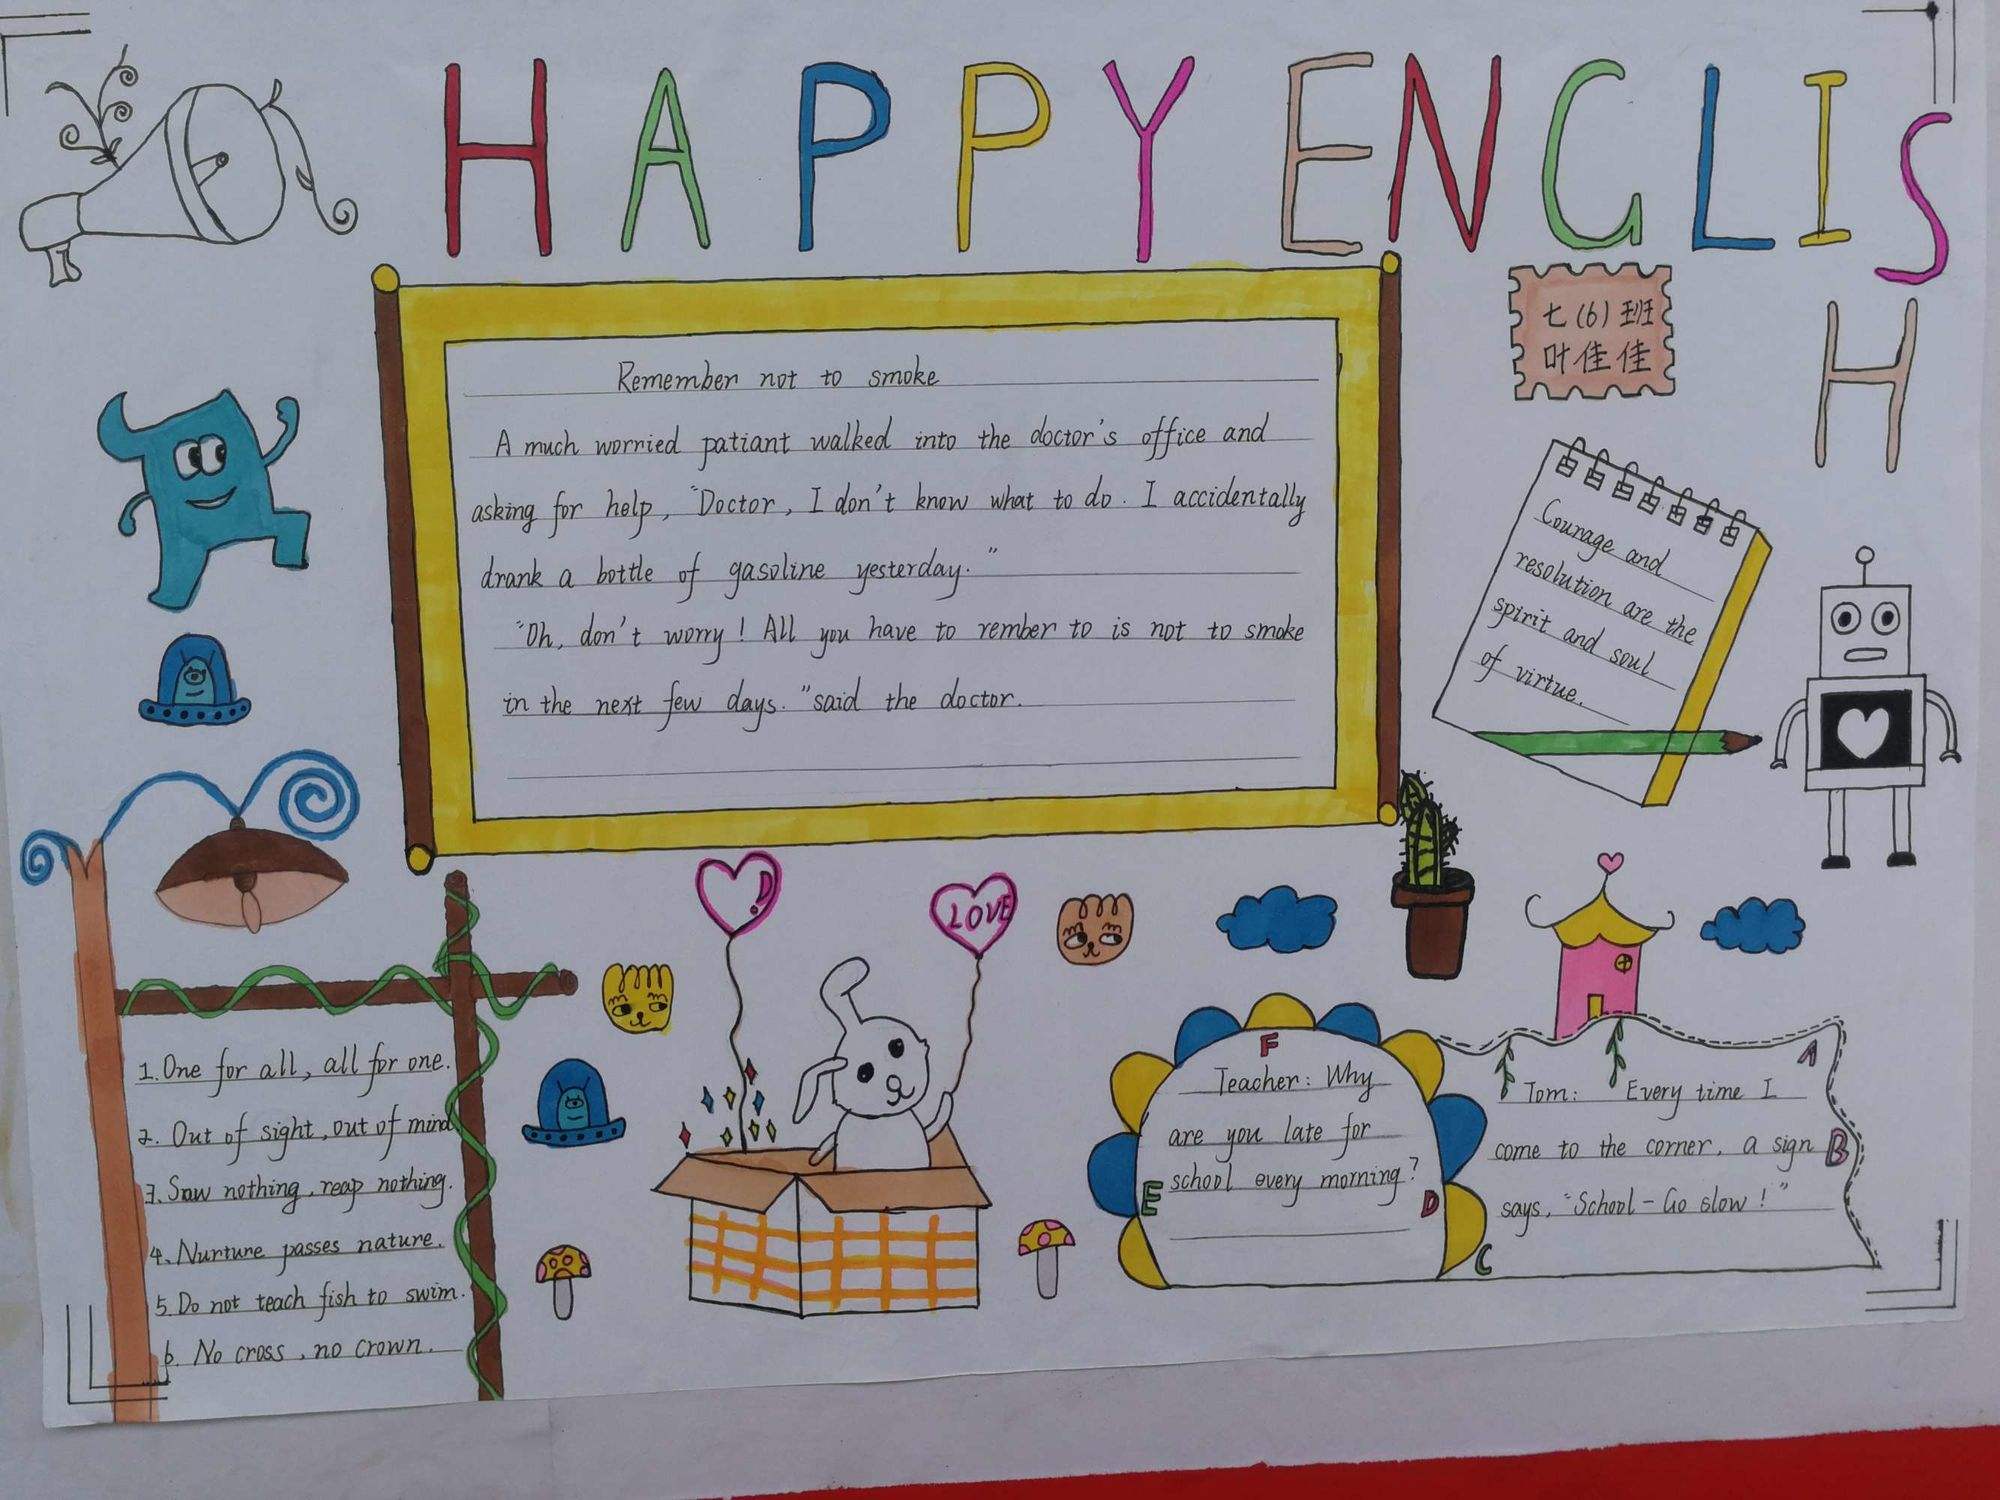 HAPPY ENGLISH
七(6)班
叶佳佳
Remember not to smoke
A much worried patiant walked into the doctor's office and
asking for help, "Doctor, I don't know what to do. I accidentally
drank a bottle of gasoline yesterday."
"Oh, don't worry! All you have to rember to is not to smoke
in the next few days. "said the doctor.
Courage and
resolution are the
spirit and soul
of virtue.
LOVE
1. One for all, all for one.
2. Out of sight, out of mind
3. Sow nothing, reap nothing.
4. Nurture passes nature.
5. Do not teach fish to swim.
6. No cross, no crown.
F
Teacher: Why
are you late for
school every morning?
E
D
C
A
Tom: Every time I
come to the corner, a sign
B
says, "School - Go slow!"